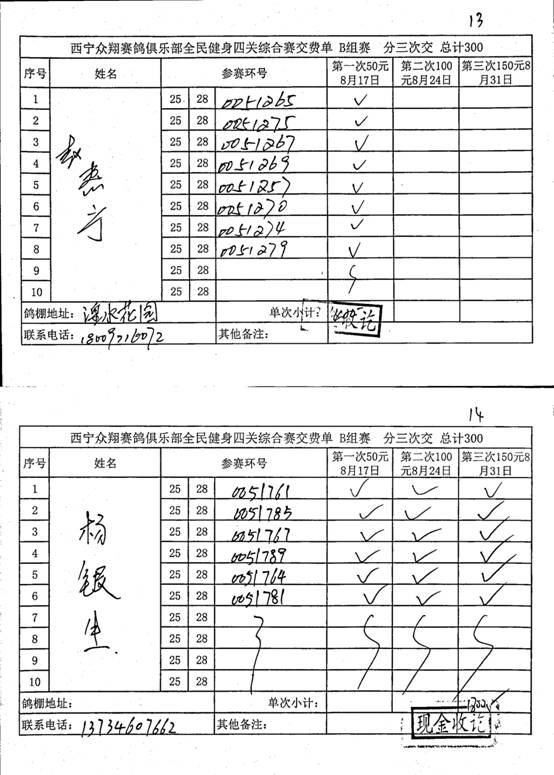 13
西宁众翔赛鸽俱乐部全民健身四关综合赛交费单 B组赛 分三次交 总计300
序号 姓名 参赛环号 第一次50元8月17日 第二次100元8月24日 第三次150元8月31日
1 25 28 0051265 ✓
2 25 28 0051275 ✓
3 25 28 0051267 ✓
4 25 28 0051269 ✓
5 25 28 0051257 ✓
6 25 28 0051270 ✓
7 25 28 0051274 ✓
8 25 28 0051279 ✓
9 25 28
10 25 28
鸽棚地址: 湟水花园 单次小计:
联系电话: 其他备注:
14
西宁众翔赛鸽俱乐部全民健身四关综合赛交费单 B组赛 分三次交 总计300
序号 姓名 参赛环号 第一次50元8月17日 第二次100元8月24日 第三次150元8月31日
杨银生
1 25 28 0051761 ✓ ✓ ✓
2 25 28 0051785 ✓ ✓ ✓
3 25 28 0051767 ✓ ✓ ✓
4 25 28 0051789 ✓ ✓ ✓
5 25 28 0051764 ✓ ✓ ✓
6 25 28 0051781 ✓ ✓ ✓
7 25 28
8 25 28
9 25 28
10 25 28
鸽棚地址: 单次小计: 1800
联系电话: 13734607662 其他备注: 现金收讫